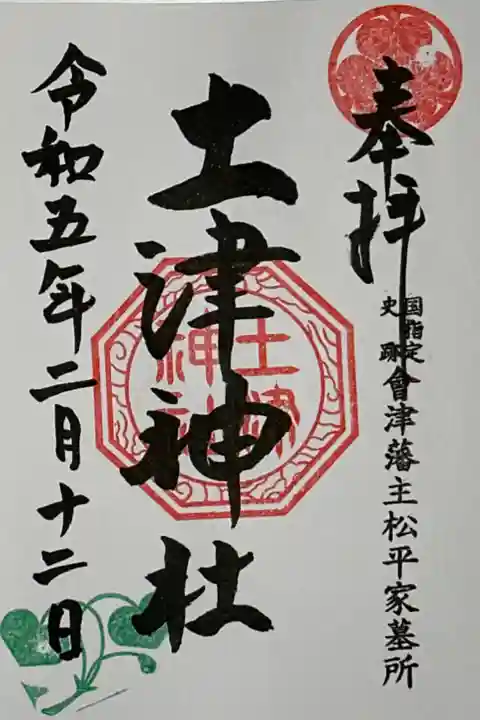 奉拝
国指定史跡 會津藩主松平家墓所
土津神社
土津神社
令和五年二月十二日